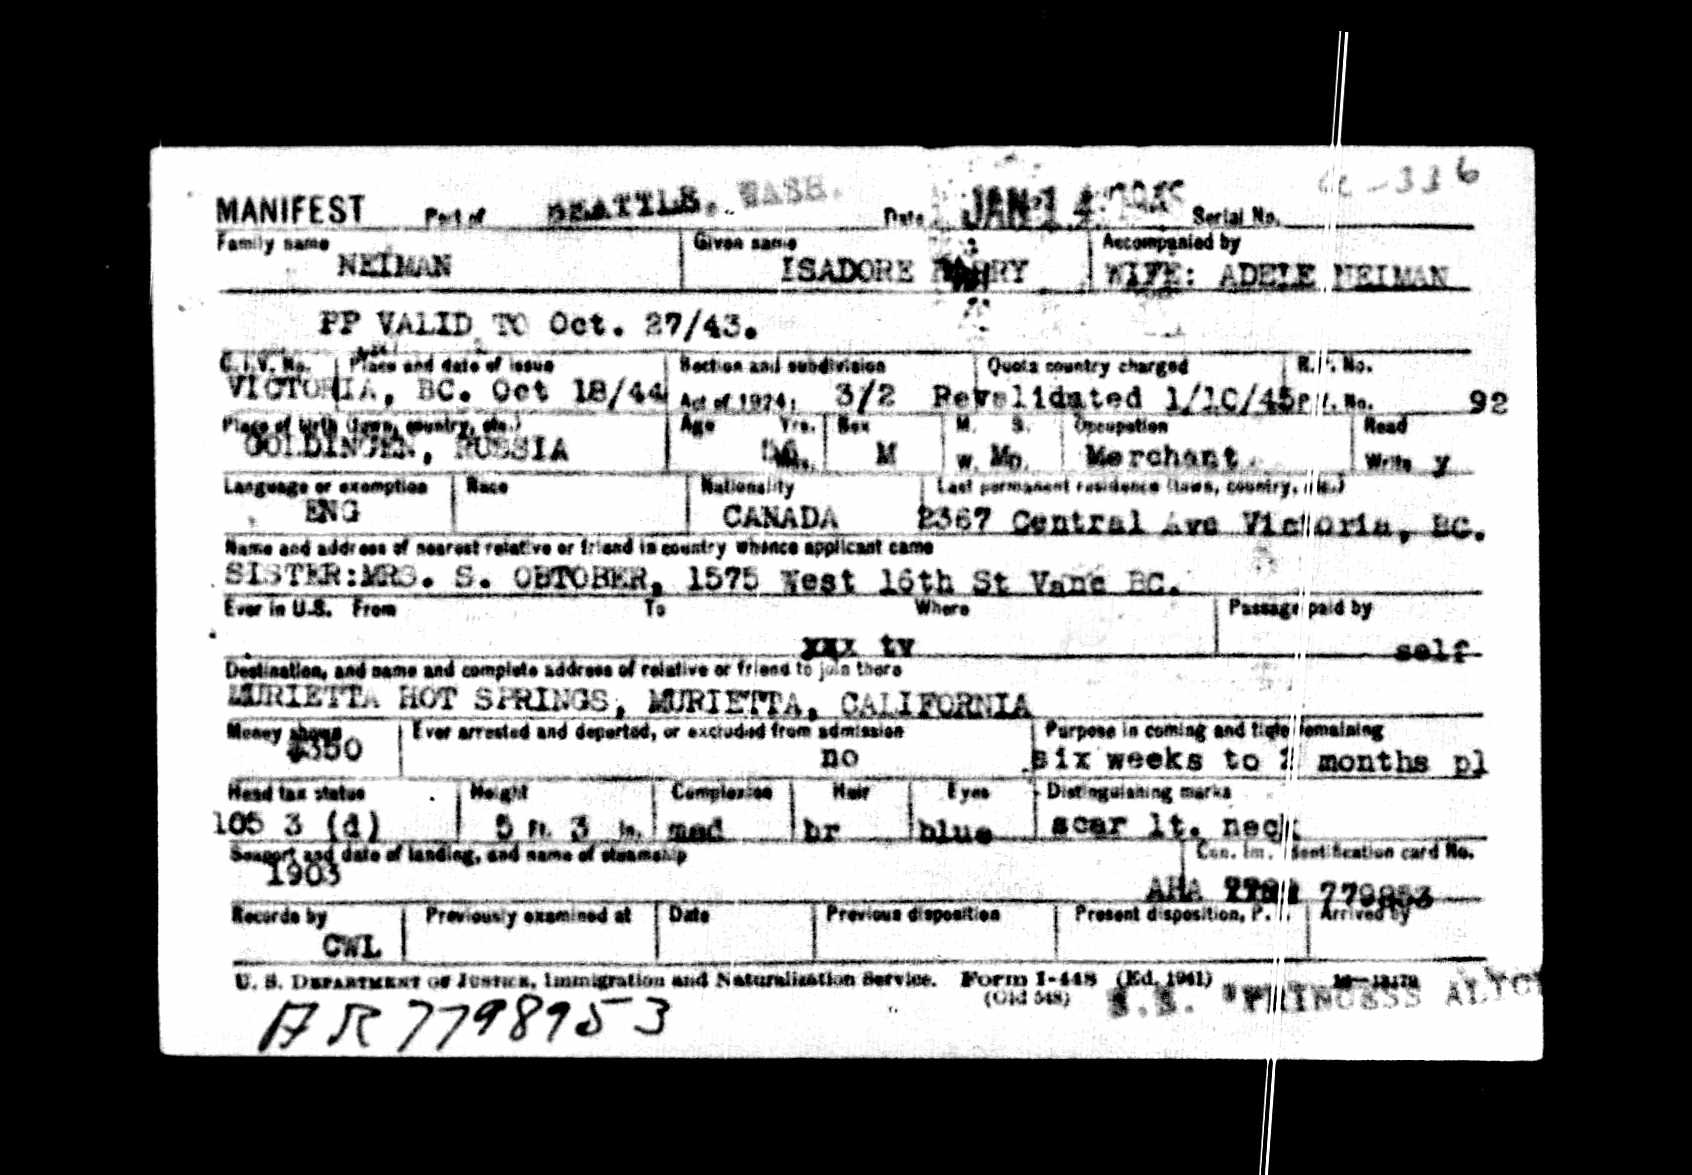 a-336
MANIFEST Port of SEATTLE, WASH. Date JAN 14 Serial No.
Family name Given name Accompanied by
NEIMAN ISADORE WIFE: ADELE NEIMAN
PP VALID TO Oct. 27/43.
C.I.V. No. Place and date of issue Section and subdivision Quota country charged R.P. No.
VICTORIA, BC. Oct 18/44 Act of 1924: 3/2 Revalidated 1/10/45 P.I. No. 92
Place of birth (town, country, etc.) Age Yrs. Sex M. S. Occupation Read
GOLDINGEN, RUSSIA Mos. M W. MD. Merchant Write y
Language or exemption Race Nationality Last permanent residence (town, country, etc.)
ENG CANADA 2367 Central Ave Victoria, BC.
Name and address of nearest relative or friend in country whence applicant came
SISTER:MRS. S. OBTOBER, 1575 West 16th St Vanc BC.
Ever in U.S. From To Where Passage paid by
xxx tv self
Destination, and name and complete address of relative or friend to join there
MURIETTA HOT SPRINGS, MURIETTA, CALIFORNIA
Money shown Ever arrested and deported, or excluded from admission Purpose in coming and time remaining
$350 no six weeks to 2 months pl
Head tax status Height Complexion Hair Eyes Distinguishing marks
105 3 (d) 5 Ft. 3 In. med br blue scar lt. neck
Seaport and date of landing, and name of steamship Can. Im. Identification card No.
1903 ARA
Records by Previously examined at Date Previous disposition Present disposition, P.I. Arrived by
CWL
U. S. DEPARTMENT OF JUSTICE, Immigration and Naturalization Service. Form I-448 (Ed. 1941) 16—13179
(Old 548) S.S. "PRINCESS ALICE
AR7798953